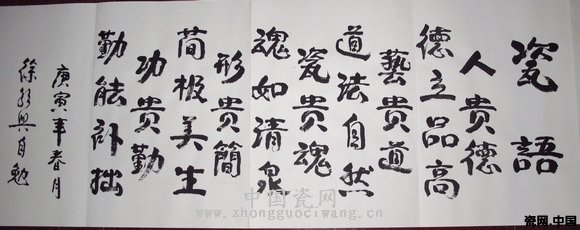 瓷語
人贵德
德立品高
藝贵道
道法自然
瓷贵魂
魂如清泉
形贵簡
简极美生
功贵勤
勤能补拙
庚寅年春月
徐興自勉
中国瓷网
www.zhongguociwang.cn
瓷网.中国